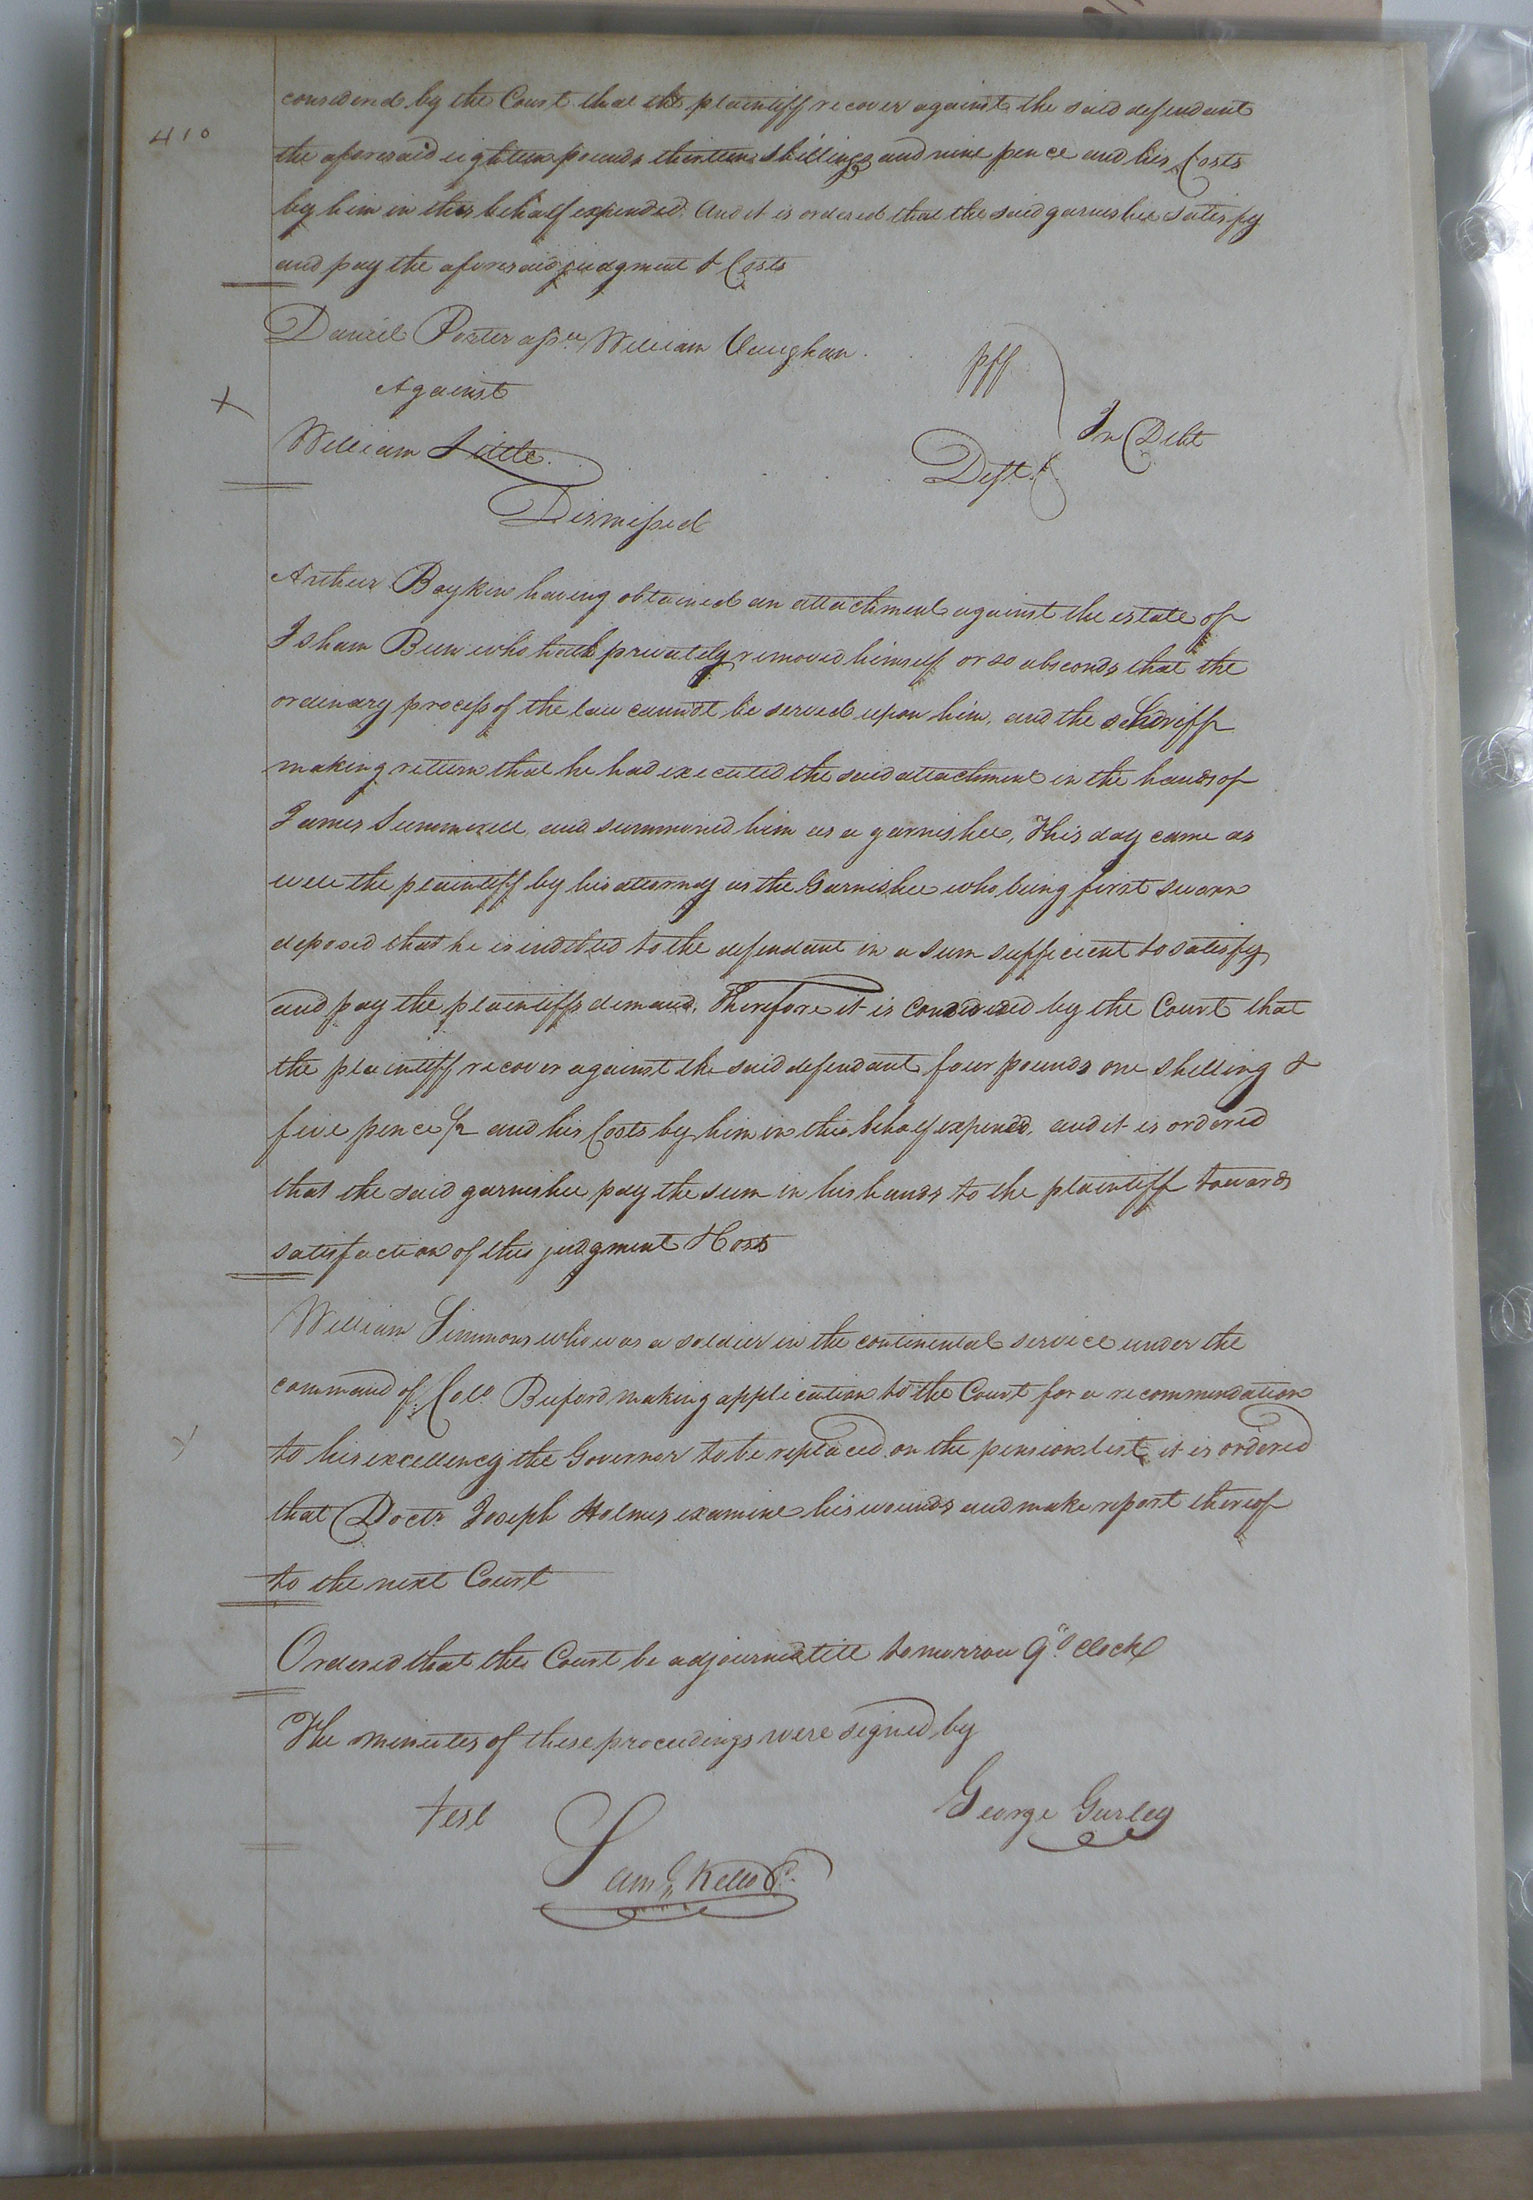 410
considered by the Court that the plaintiff recover against the said defendant
the aforesaid eighteen pounds thirteen shillings and nine pence and his Costs
by him in this behalf expended. And it is ordered that the said garnishee satisfy
and pay the aforesaid judgment & Costs
Daniel Porter assee William Vaughan. pff
Against
In Debt
William Little. Deft.
Dismissed
Arthur Boykin having obtained an attachment against the estate of
Isham Bunn who hath privately removed himself or so absconds that the
ordinary process of the law cannot be served upon him, and the sheriff
making return that he had executed the said attachment in the hands of
James Summerell and summoned him as a garnishee, This day came as
well the plaintiff by his attorney as the Garnishee who being first sworn
deposed that he is indebted to the defendant in a sum sufficient to satisfy
and pay the plaintiffs demand, Therefore it is considered by the Court that
the plaintiff recover against the said defendant four pounds one shilling &
five pence and his Costs by him in this behalf expended, and it is ordered
that the said garnishee pay the sum in his hands to the plaintiff towards
satisfaction of this judgment & Costs
William Simmons who was a soldier in the continental service under the
command of Colo. Buford making application to the Court for a recommendation
to his excellency the Governor to be replaced on the pension list it is ordered
that Doctr. Joseph Holmes examine his wounds and make report thereof
to the next Court
Ordered that the Court be adjourned till tomorrow 9 "o clock
The minutes of these proceedings were signed by
Test George Gurley
Saml. Kello C.